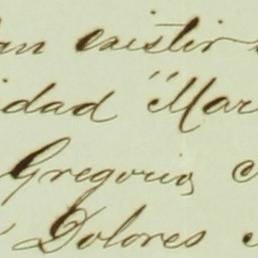 an existir
idad "Mar
Gregorio,
Dolores